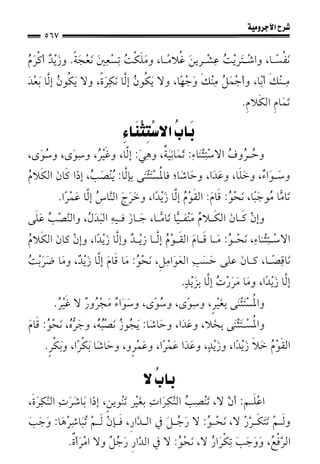 شرح الآجرومية
٥٦٧
نَفْسًا، وَاشْتَرَيْتُ عِشْرِينَ غُلَامًا، وَمَلَكْتُ تِسْعِينَ نَعْجَةً. وَزَيْدٌ أَكْرَمُ
مِنْكَ أَبًا، وَأَجْمَلُ مِنْكَ وَجْهًا، وَلَا يَكُونُ إِلَّا نَكِرَةً، وَلَا يَكُونُ إِلَّا بَعْدَ
تَمَامِ الكَلَامِ.
بَابُ الاسْتِثْنَاءِ
وَحُرُوفُ الاسْتِثْنَاءِ: ثَمَانِيَةٌ، وَهِيَ: إِلَّا، وَغَيْرُ، وَسِوَى، وَسُوَى،
وَسَوَاءٌ، وَخَلَا، وَعَدَا، وَحَاشَا؛ فَالْمُسْتَثْنَى بِإِلَّا: يُنْصَبُ، إِذَا كَانَ الكَلَامُ
تَامًّا مُوجَبًا، نَحْوُ: قَامَ: القَوْمُ إِلَّا زَيْدًا، وَخَرَجَ النَّاسُ إِلَّا عَمْرًا.
وَإِنْ كَانَ الكَلَامُ مَنْفِيًّا تَامًّا، جَازَ فِيهِ البَدَلُ، وَالنَّصْبُ عَلَى
الاسْتِثْنَاءِ، نَحْوُ: مَا قَامَ القَوْمُ إِلَّا زَيْدٌ وَإِلَّا زَيْدًا، وَإِنْ كَانَ الكَلَامُ
نَاقِصًا، كَانَ عَلَى حَسَبِ العَوَامِلِ، نَحْوُ: مَا قَامَ إِلَّا زَيْدٌ، وَمَا ضَرَبْتُ
إِلَّا زَيْدًا، وَمَا مَرَرْتُ إِلَّا بِزَيْدٍ.
وَالْمُسْتَثْنَى بِغَيْرٍ، وَسِوَى، وَسُوَى، وَسَوَاءٌ مَجْرُورٌ لَا غَيْرُ.
وَالْمُسْتَثْنَى بِخَلَا، وَعَدَا، وَحَاشَا: يَجُوزُ نَصْبُهُ، وَجَرُّهُ، نَحْوُ: قَامَ
القَوْمُ خَلَا زَيْدًا، وَزَيْدٍ، وَعَدَا عَمْرًا، وَعَمْرٍو، وَحَاشَا بَكْرًا، وَبَكْرٍ.
بَابُ لَا
اعْلَمْ: أَنَّ لَا، تَنْصِبُ النَّكِرَاتِ بِغَيْرِ تَنْوِينٍ، إِذَا بَاشَرَتِ النَّكِرَةَ،
وَلَمْ تَتَكَرَّرْ لَا، نَحْوُ: لَا رَجُلَ فِي الدَّارِ، فَإِنْ لَمْ تُبَاشِرْهَا: وَجَبَ
الرَّفْعُ، وَوَجَبَ تِكْرَارُ لَا، نَحْوُ: لَا فِي الدَّارِ رَجُلٌ وَلَا امْرَأَةٌ.